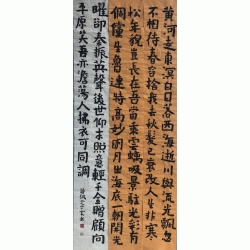 黃河走東溟白日落西海逝川與流光飄忽
不相待春容捨我去秋髮已衰改人生非寒
松年貌豈長在吾當乘雲螭吸景駐光彩齊有
倜儻生魯連特高妙明月出海底一朝開光
曜卻秦振英聲後世仰末照意輕千金贈顧向
平原笑吾亦澹蕩人拂衣可同調